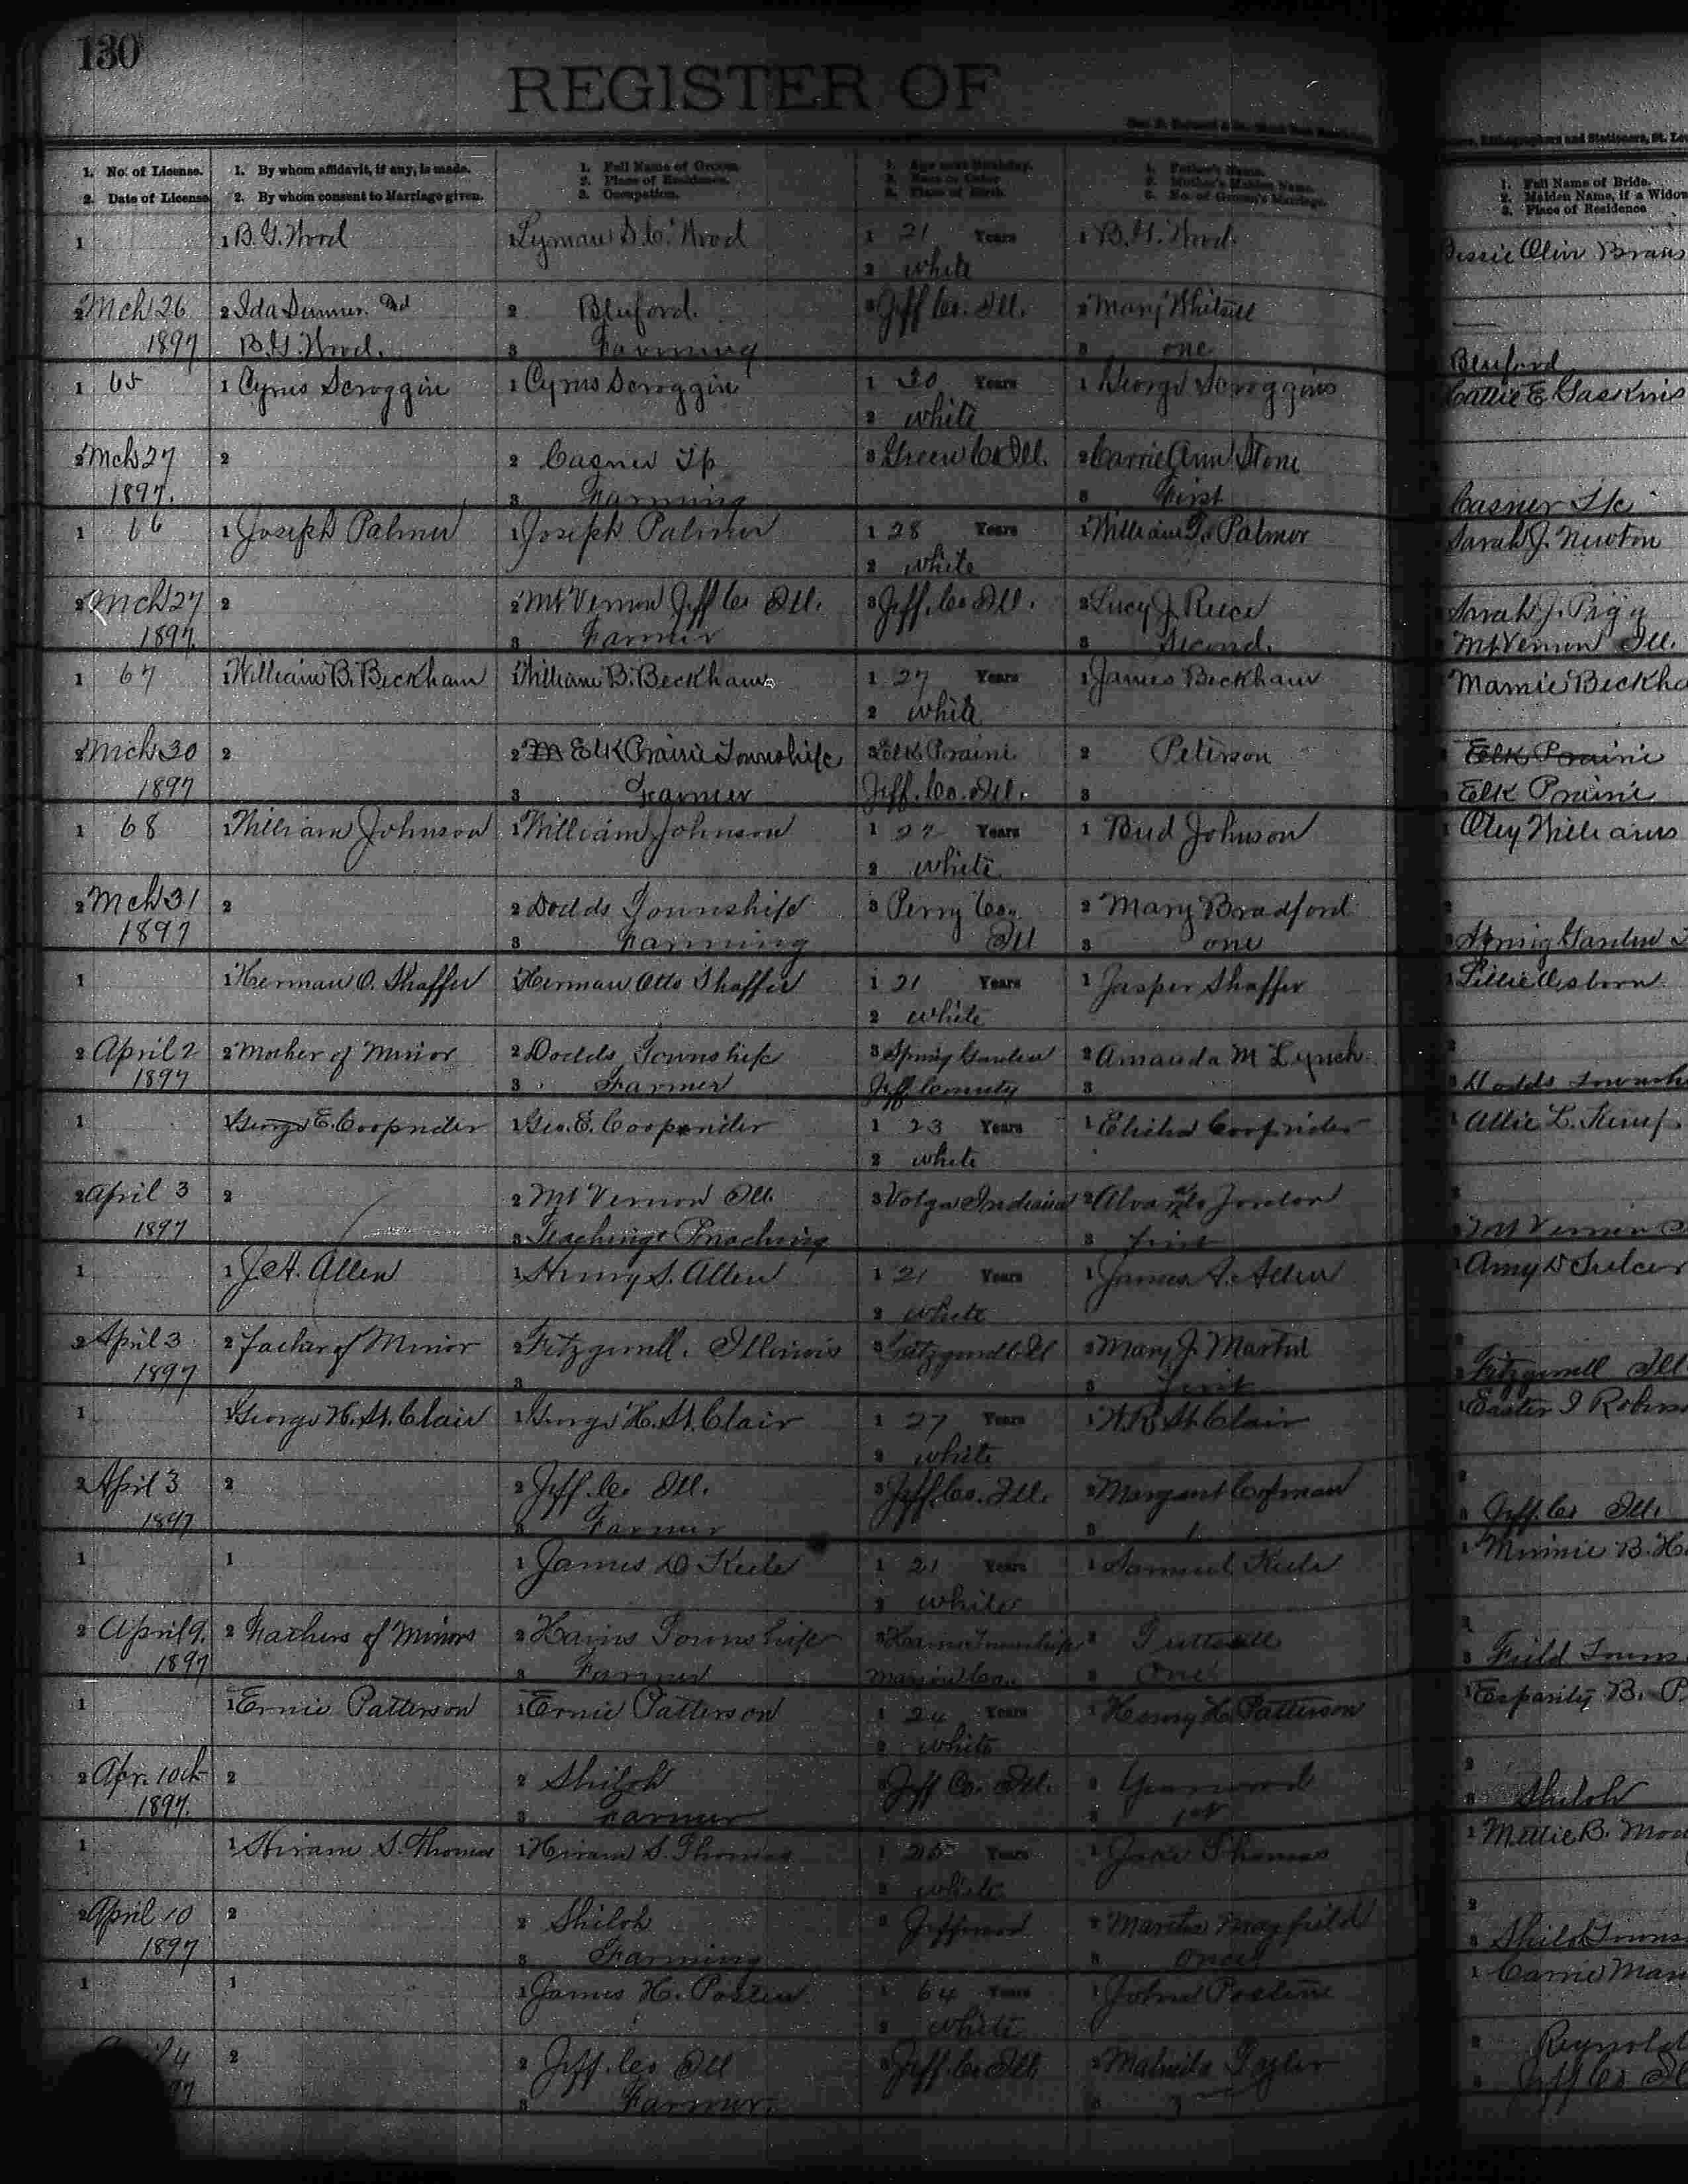 130
REGISTER OF
1. No. of License.
2. Date of License.
1. By whom affidavit, if any, is made.
2. By whom consent to Marriage given.
1. Full Name of Groom.
2. Place of Residence.
3. Occupation.
1. Age next Birthday.
2. Race or Color
3. Place of Birth.
1. Father's Name.
2. Mother's Maiden Name.
3. No. of Groom's Marriage.
1. Full Name of Bride.
2. Maiden Name, if a Widow
3. Place of Residence
1 1 B. G. Wood 1 Lyman S. C. Wood 1 21 Years 1 B. G. Wood
2 white
2 Mch 26 2 Ida 2 Bluford. 3 Jeff Co. Ill. 2 Mary
1897 B. G. Wood. 3 Farming 3 one Bluford
1 65 1 Cyrus Scroggin 1 Cyrus Scroggin 1 30 Years 1 George Scroggins Cattie E Gaskins
2 white
2 Mch 27 2 2 Casner Tp 3 Green Co Ill. 2 Carrie Ann Stone
1897. 3 Farming 3 First Casner
1 66 1 Joseph Palmer 1 Joseph Palmer 1 28 Years 1 William Palmer Sarah J. Newton
2 white
2 Mch 27 2 2 Mt Vernon Jeff Co Ill. 3 Jeff. Co Ill. 2 Lucy J. Reece Sarah J.
1897. 3 Farmer 3 Second. Mt Vernon Ill.
1 67 1 William B. Beckham 1 William B. Beckham 1 27 Years 1 James Beckham Mamie Beckha
2 white
2 Mch 30 2 2 Elk Prairie Township 3 Elk Prairie 2 Peterson Elk Prairie
1897 3 Farmer Jeff. Co. Ill. 3 Elk Prairie
1 68 1 William Johnson 1 William Johnson 1 27 Years 1 Bud Johnson Williams
2 white
2 Mch 31 2 2 Dodds Township 3 Perry Co. 2 Mary Bradford
1897 3 Farming Ill 3 one Spring Garden
1 1 Herman O. Shaffer 1 Herman Otto Shaffer 1 21 Years 1 Jasper Shaffer Lillie Osborn
2 white
2 April 2 2 Mother of Minor 2 Dodds Township 3 Spring Garden 2 Amanda M Lynch
1897 3 Farmer Jeff. County 3 Dodds Townsh
1 1 George E. Cooprider 1 Geo. E. Cooprider 1 23 Years 1 Elisha Cooprider 1 Allie L.
2 white
2 April 3 2 2 Mt Vernon Ill. 3 Volga Indiana 2
1897 3 Teaching & Preaching 3 first Mt Vernon
1 1 J. A. Allen 1 Henry S. Allen 1 21 Years 1 James A. Allen 1 Amy
2 white
2 April 3 2 Father of Minor 2 Fitzgerrell. Illinois 3 Fitzgerrell Ill 2 Mary J. Martin
1897 3 3 first Fitzgerrell Ill
1 1 George H. St. Clair 1 George H. St. Clair 1 27 Years 1 St Clair 1 Easter
2 white
2 April 3 2 2 Jeff. Co. Ill. 3 Jeff. Co. Ill. 2 Margaret
1897 3 Farmer 3 1. 3 Jeff. Co Ill.
1 1 1 James D Keele 1 21 Years 1 Samuel Keele 1 Minnie B. H
2 white
2 April 9. 2 Fathers of Minors 2 Township 3 Township 2
1897 3 Farmer Marion Co. 3 One 3 Field Towns
1 1 Ernie Patterson 1 Ernie Patterson 1 24 Years 1 Henry H. Patterson 1 B. P
2 white
2 Apr. 10th 2 2 Shiloh 3 Jeff Co. Ill. 2 Yearwood
1897. 3 Farmer 3 1st 3 Shiloh
1 1 Hiram S. Thomas 1 Hiram S. Thomas 1 25 Years 1 Jake Thomas 1 Mettie B.
2 white
2 April 10 2 2 Shiloh 3 Jefferson 2 Martha Mayfield
1897 3 Farming 3 once 3 Shiloh Towns
1 1 1 James H. 1 64 Years 1 John 1 Carrie
2 white
4 2 2 Jeff. Co Ill 3 Jeff. Co Ill 2 Malinda Taylor 2 Reynold
97 3 Farmer. 3 3 Jeff Co.